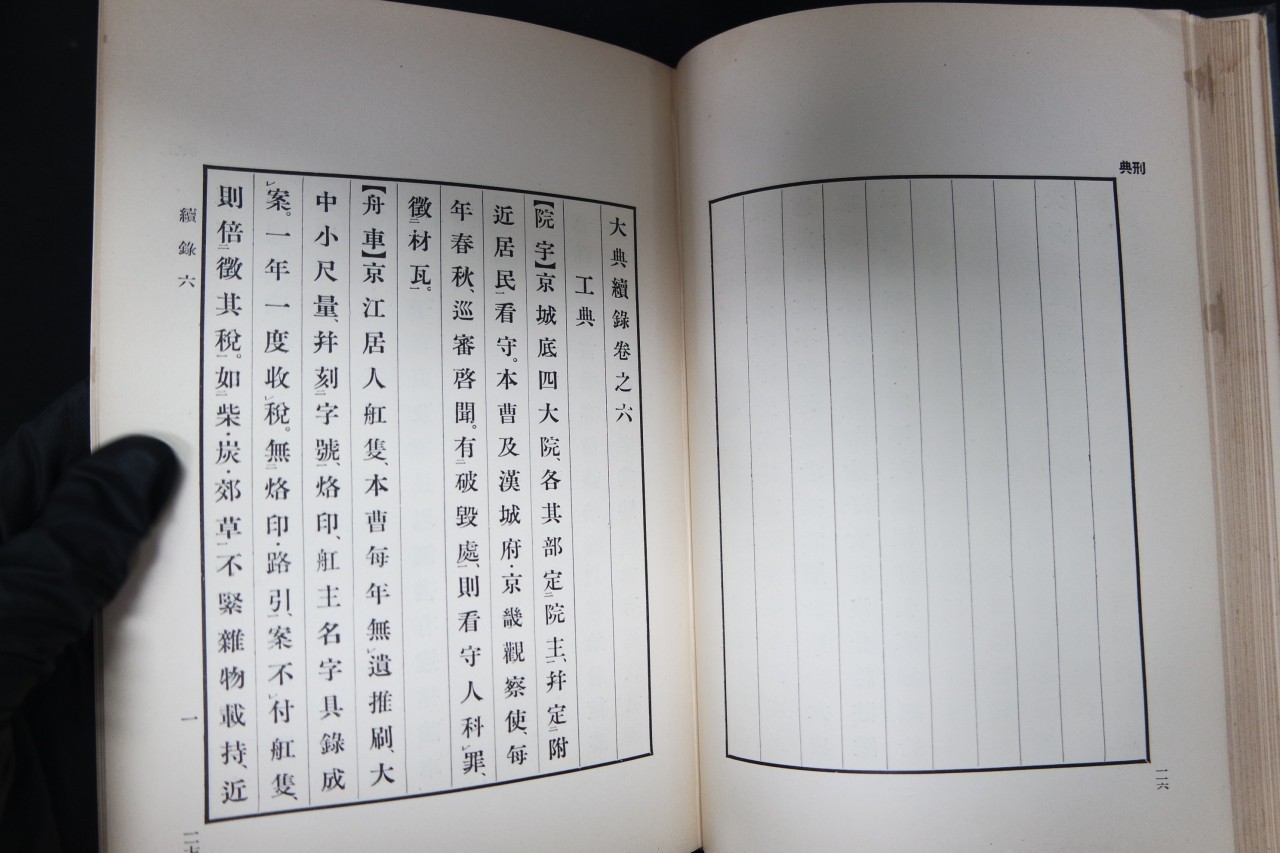 刑典
一二六
大典續錄卷之六
工典
【院宇】京城底四大院、各其部定二院主一、幷定二附
近居民一看守。本曹及漢城府・京畿觀察使、每
年春秋、巡審啓聞。有二破毀處一、則看守人科レ罪、
徵二材瓦一。
【舟車】京江居人舡隻、本曹每年無レ遺推刷、大
中小尺量、幷刻二字號一、烙印、舡主名字具錄成
レ案。一年一度收レ稅。無二烙印・路引一、案不レ付舡隻、
則倍二徵其稅一。如二柴・炭・郊草一不緊雜物載持、近
續錄六
一